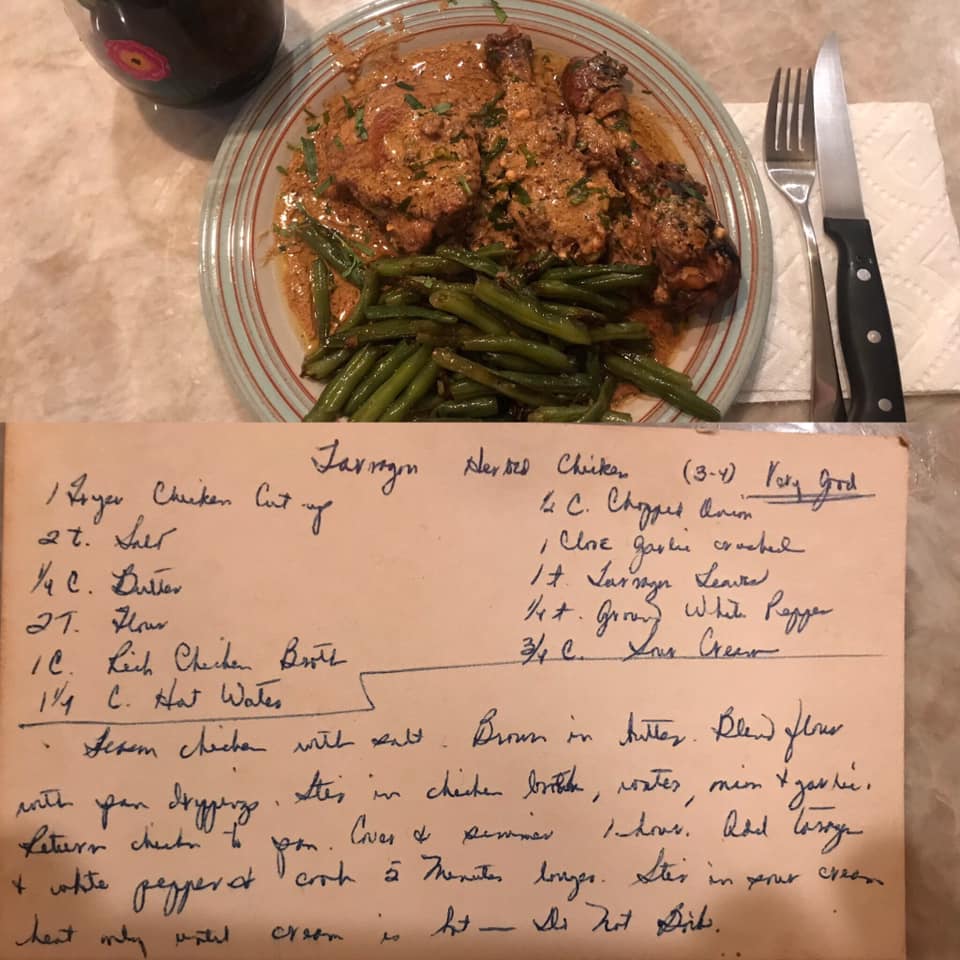 Tarragon Herbed Chicken (3-4) Very Good
1 Fryer Chicken Cut up
2 t. Salt
1/4 C. Butter
2 T. Flour
1 C. Rich Chicken Broth
1 1/4 C. Hot Water
1/2 C. Chopped Onion
1 Clove garlic crushed
1 t. Tarragon Leaves
1/4 t. Ground White Pepper
3/4 C. Sour Cream
Season chicken with salt. Brown in butter. Blend flour
with pan drippings. Stir in chicken broth, water, onion & garlic.
Return chicken to pan. Cover & simmer 1 hour. Add tarragon
& white pepper & cook 5 Minutes longer. Stir in sour cream
heat only until cream is hot — Do Not Boil.